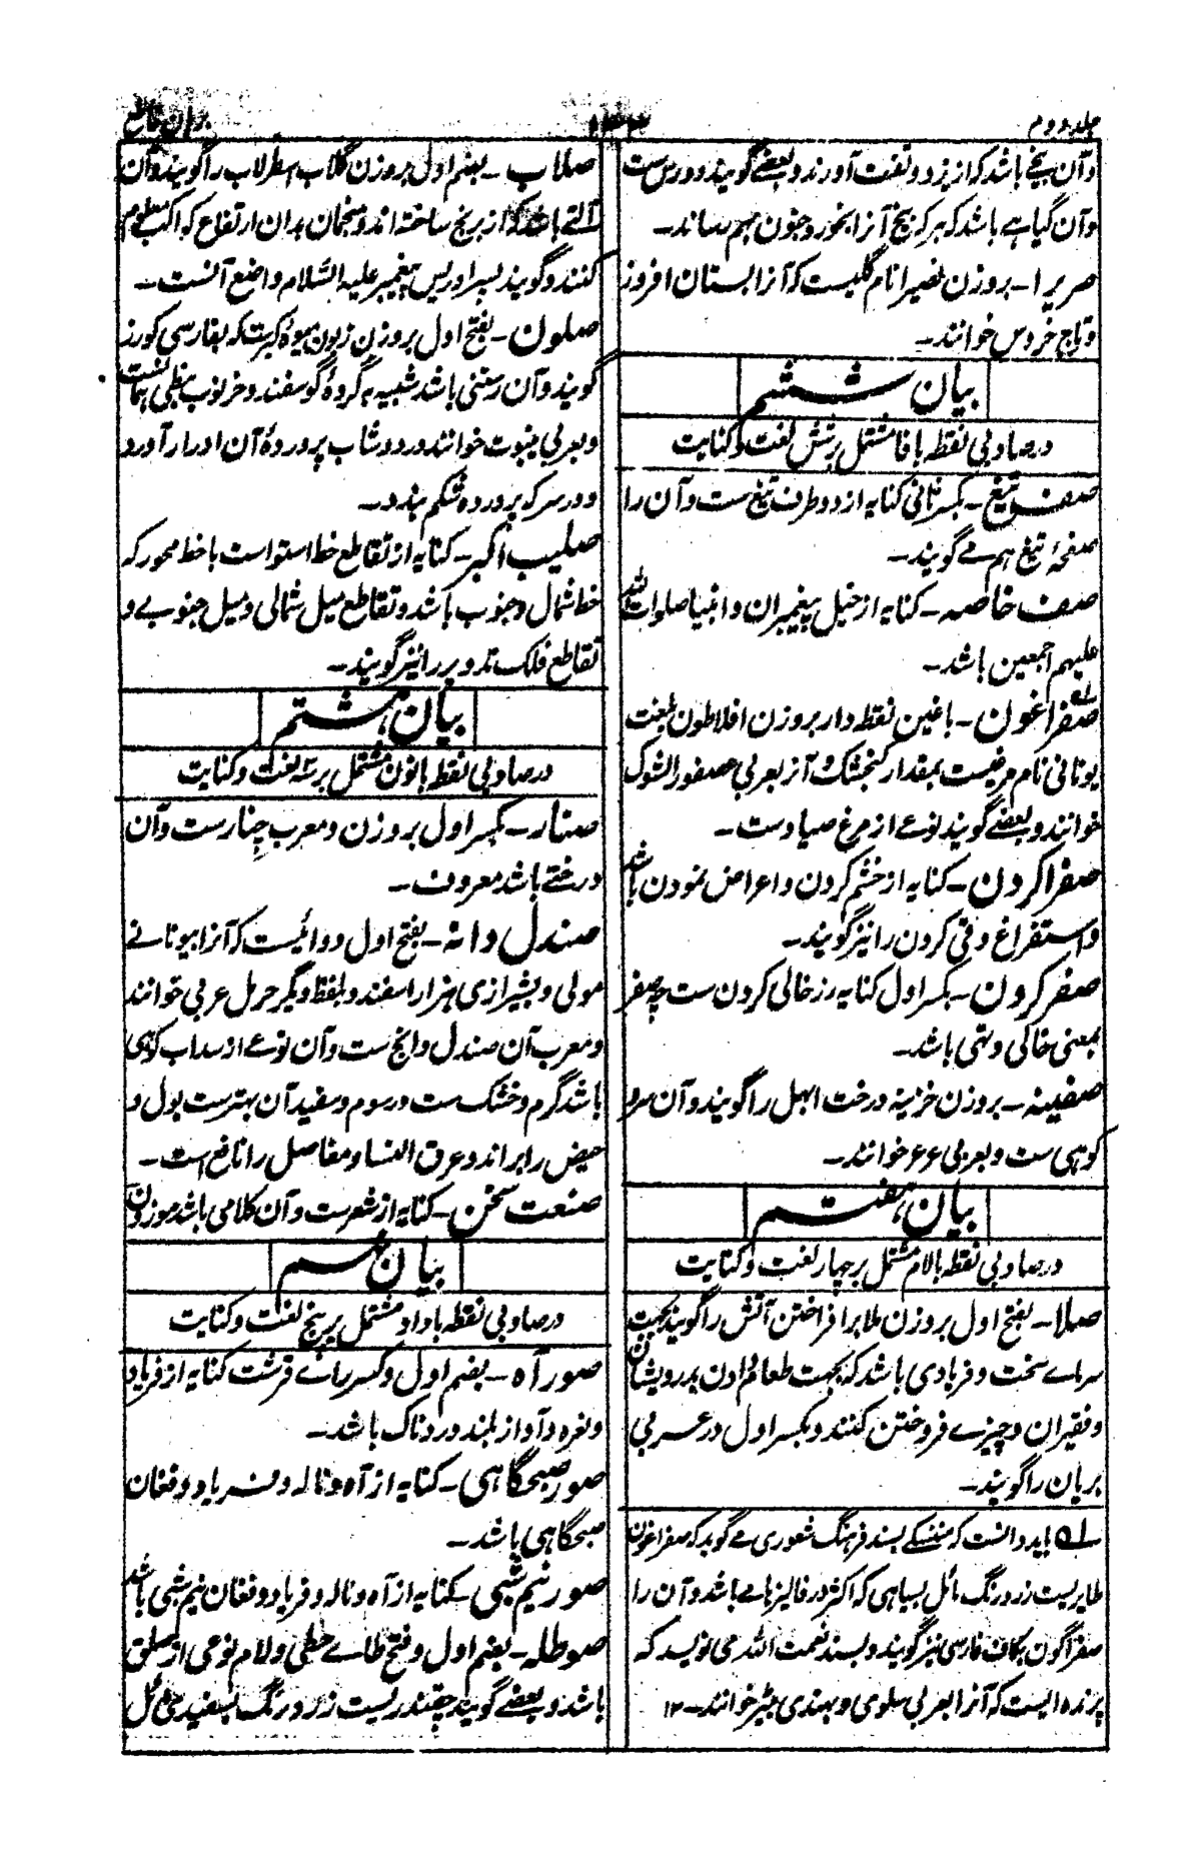 جلد دوم
برهان قاطع
وآن بیخے باشد که از یزد و تفت آورند و بعضے گویند دورس ست
وآن گیاہے باشد که هر که بیخ آنرا بخورد جنون بهم رساند۔
صریرا۔ بروزن نصیرا نام گلیست که آنرا بستان افروز
و تاج خروس خوانند۔
بیان ششم
در صاد بی نقطه با فا مشتمل بر شش لغت و کنایت
صف تیغ۔ بکسر ثانی کنایه از دو طرف تیغ ست وآن را
صفحهٔ تیغ هم مے گویند۔
صف خاصه۔ کنایه از خیل پیغمبران و انبیا صلوات الله
علیهم اجمعین باشد۔
صفراغون۔ با غین نقطه دار بروزن افلاطون بلغت
یونانی نام مرغیست بمقدار گنجشک و آنرا بعربی عصفور الشوک
خوانند و بعضے گویند نوعے از مرغ صیاد ست۔
صفرا کردن۔ کنایه از خشم کردن و اعراض نمودن باشد
و استفراغ و قی کردن را نیز گویند۔
صفر کردن۔ بکسر اول کنایه از خالی کردن ست چه صفر
بمعنی خالی و تهی باشد۔
صفینه۔ بروزن خزینه درخت ابهل را گویند وآن سرو
کوهی ست و بعربی عرعر خوانند۔
بیان هفتم
در صاد بی نقطه با لام مشتمل بر چهار لغت و کنایت
صلا۔ بفتح اول بروزن ملا برافراختن آتش را گویند بجهت
سرماے سخت و فریادی باشد که بجهت طعام دادن بدرویشان
و فقیران و چیزے فروختن کنند و بکسر اول در عربی
بریان را گویند۔
باید دانست که منسکے بسند فرهنگ شعوری مے گوید که صفراغون
طایریست زرد رنگ مائل بسیاهی که اکثر در فالیزہاے باشد وآن را
صفراگون بکاف فارسی نیز گویند و بسند نعمت الله می نویسد که
پرنده ایست که آنرا بعربی سلوی و بهندی بٹیر خوانند۔ ۱۲
صلاب۔ بضم اول بروزن گلاب اسطرلاب را گویند وآن
آلتے باشد که از برنج ساخته اند و منجمان بدان ارتفاع کواکب معلوم
کنند و گویند پسر ادریس پیغمبر علیه السّلام واضع آنست۔
صلون۔ بفتح اول بروزن زبون میوهٔ کبرست که بفارسی کورز
گویند وآن رستنی باشد شبیه بگروهٔ گوسفند و خرنوب نبطی همانست
و بعربی ینبوت خوانند و در دوشاب پروردهٔ آن ادرار آورد
و در سرکه پرورده شکم بندد۔
صلیب اکبر۔ کنایه از تقاطع خط استواست با خط محور که
خط شمال و جنوب باشد و تقاطع میل شمالی و میل جنوبے و
تقاطع فلک تدویر را نیز گویند۔
بیان هشتم
در صاد بی نقطه با نون مشتمل بر سه لغت و کنایت
صنار۔ بکسر اول بروزن و معرب چنارست وآن
درختے باشد معروف۔
صندل دانه۔ بفتح اول دوائیست که آنرا بیونانے
مولی و بشیرازی هزار اسفند و بلفظ دیگر حرمل عربی خوانند
و معرب آن صندل دانج ست وآن نوعے از سداب کوهی
باشد گرم و خشک ست در سوم و سفید آن بهترست بول و
حیض را براند و عرق النسا و مفاصل را نافع است۔
صنعت سخن۔ کنایه از شعرست وآن کلامی باشد موزون
بیان نهم
در صاد بی نقطه با واو مشتمل بر پنج لغت و کنایت
صور آه۔ بضم اول و کسر راے قرشت کنایه از فریاد
و نعره و آواز بلند دردناک باشد۔
صور صبحگاهی۔ کنایه از آه و ناله و فریاد و فغان
صبحگاهی باشد۔
صور نیم شبی۔ کنایه از آه و ناله و فریاد و فغان نیم شبی باشد
صوطله۔ بضم اول و فتح طاے حطی و لام نوعی از سلق
باشد و بعضے گویند چقندریست زرد رنگ بسفیدی مائل